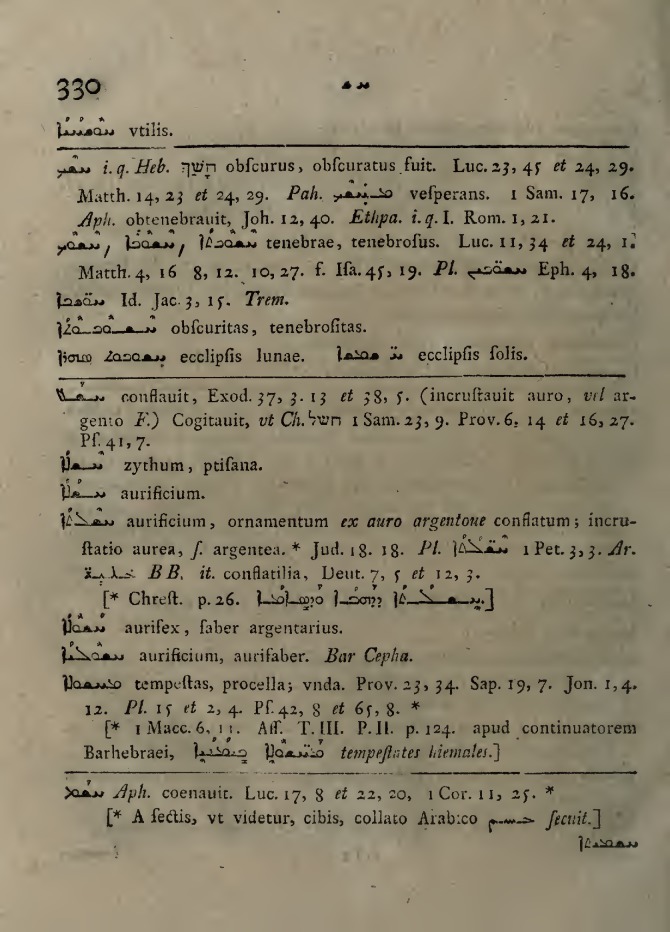 330 ܚܫ
ܚܘܫܚܢܐ vtilis.
ܚܫܟ i. q. Heb. חשך obſcurus, obſcuratus fuit. Luc. 23, 45 et 24, 29.
Matth. 14, 23 et 24, 29. Pah. veſperans. 1 Sam. 17, 16.
Aph. obtenebrauit, Joh. 12, 40. Ethpa. i. q. I. Rom. 1, 21.
tenebrae, tenebroſus. Luc. 11, 34 et 24, 1.
Matth. 4, 16 8, 12. 10, 27. f. Iſa. 45, 19. Pl. Eph. 4, 18.
Id. Jac. 3, 15. Trem.
obſcuritas, tenebroſitas.
ecclipſis lunae. ecclipſis ſolis.
ܚܫܠ conflauit, Exod. 37, 3. 13 et 38, 5. (incruſtauit auro, vel ar-
gento F.) Cogitauit, vt Ch. חשל 1 Sam. 23, 9. Prov. 6, 14 et 16, 27.
Pſ. 41, 7.
ܚܫܠܐ zythum, ptiſana.
ܚܫܠܐ aurificium.
ܚܫܠܬܐ aurificium, ornamentum ex auro argentoue conflatum; incru-
ſtatio aurea, ſ. argentea. * Jud. 18. 18. Pl. 1 Pet. 3, 3. Ar.
BB. it. conflatilia, Deut. 7, 5 et 12, 3.
[* Chreſt. p. 26.]
ܚܫܘܠܐ aurifex, faber argentarius.
aurificium, aurifaber. Bar Cepha.
ܡܚܫܘܠܐ tempeſtas, procella; vnda. Prov. 23, 34. Sap. 19, 7. Jon. 1, 4.
12. Pl. 15 et 2, 4. Pſ. 42, 8 et 65, 8. *
[* 1 Macc. 6, 11. Aſſ. T. III. P. II. p. 124. apud continuatorem
Barhebraei, tempeſtates hiemales.]
ܚܫܡ Aph. coenauit. Luc. 17, 8 et 22, 20, 1 Cor. 11, 25. *
[* A ſectis, vt videtur, cibis, collato Arabico ſecuit.]
ܚܫܡܝܬܐ